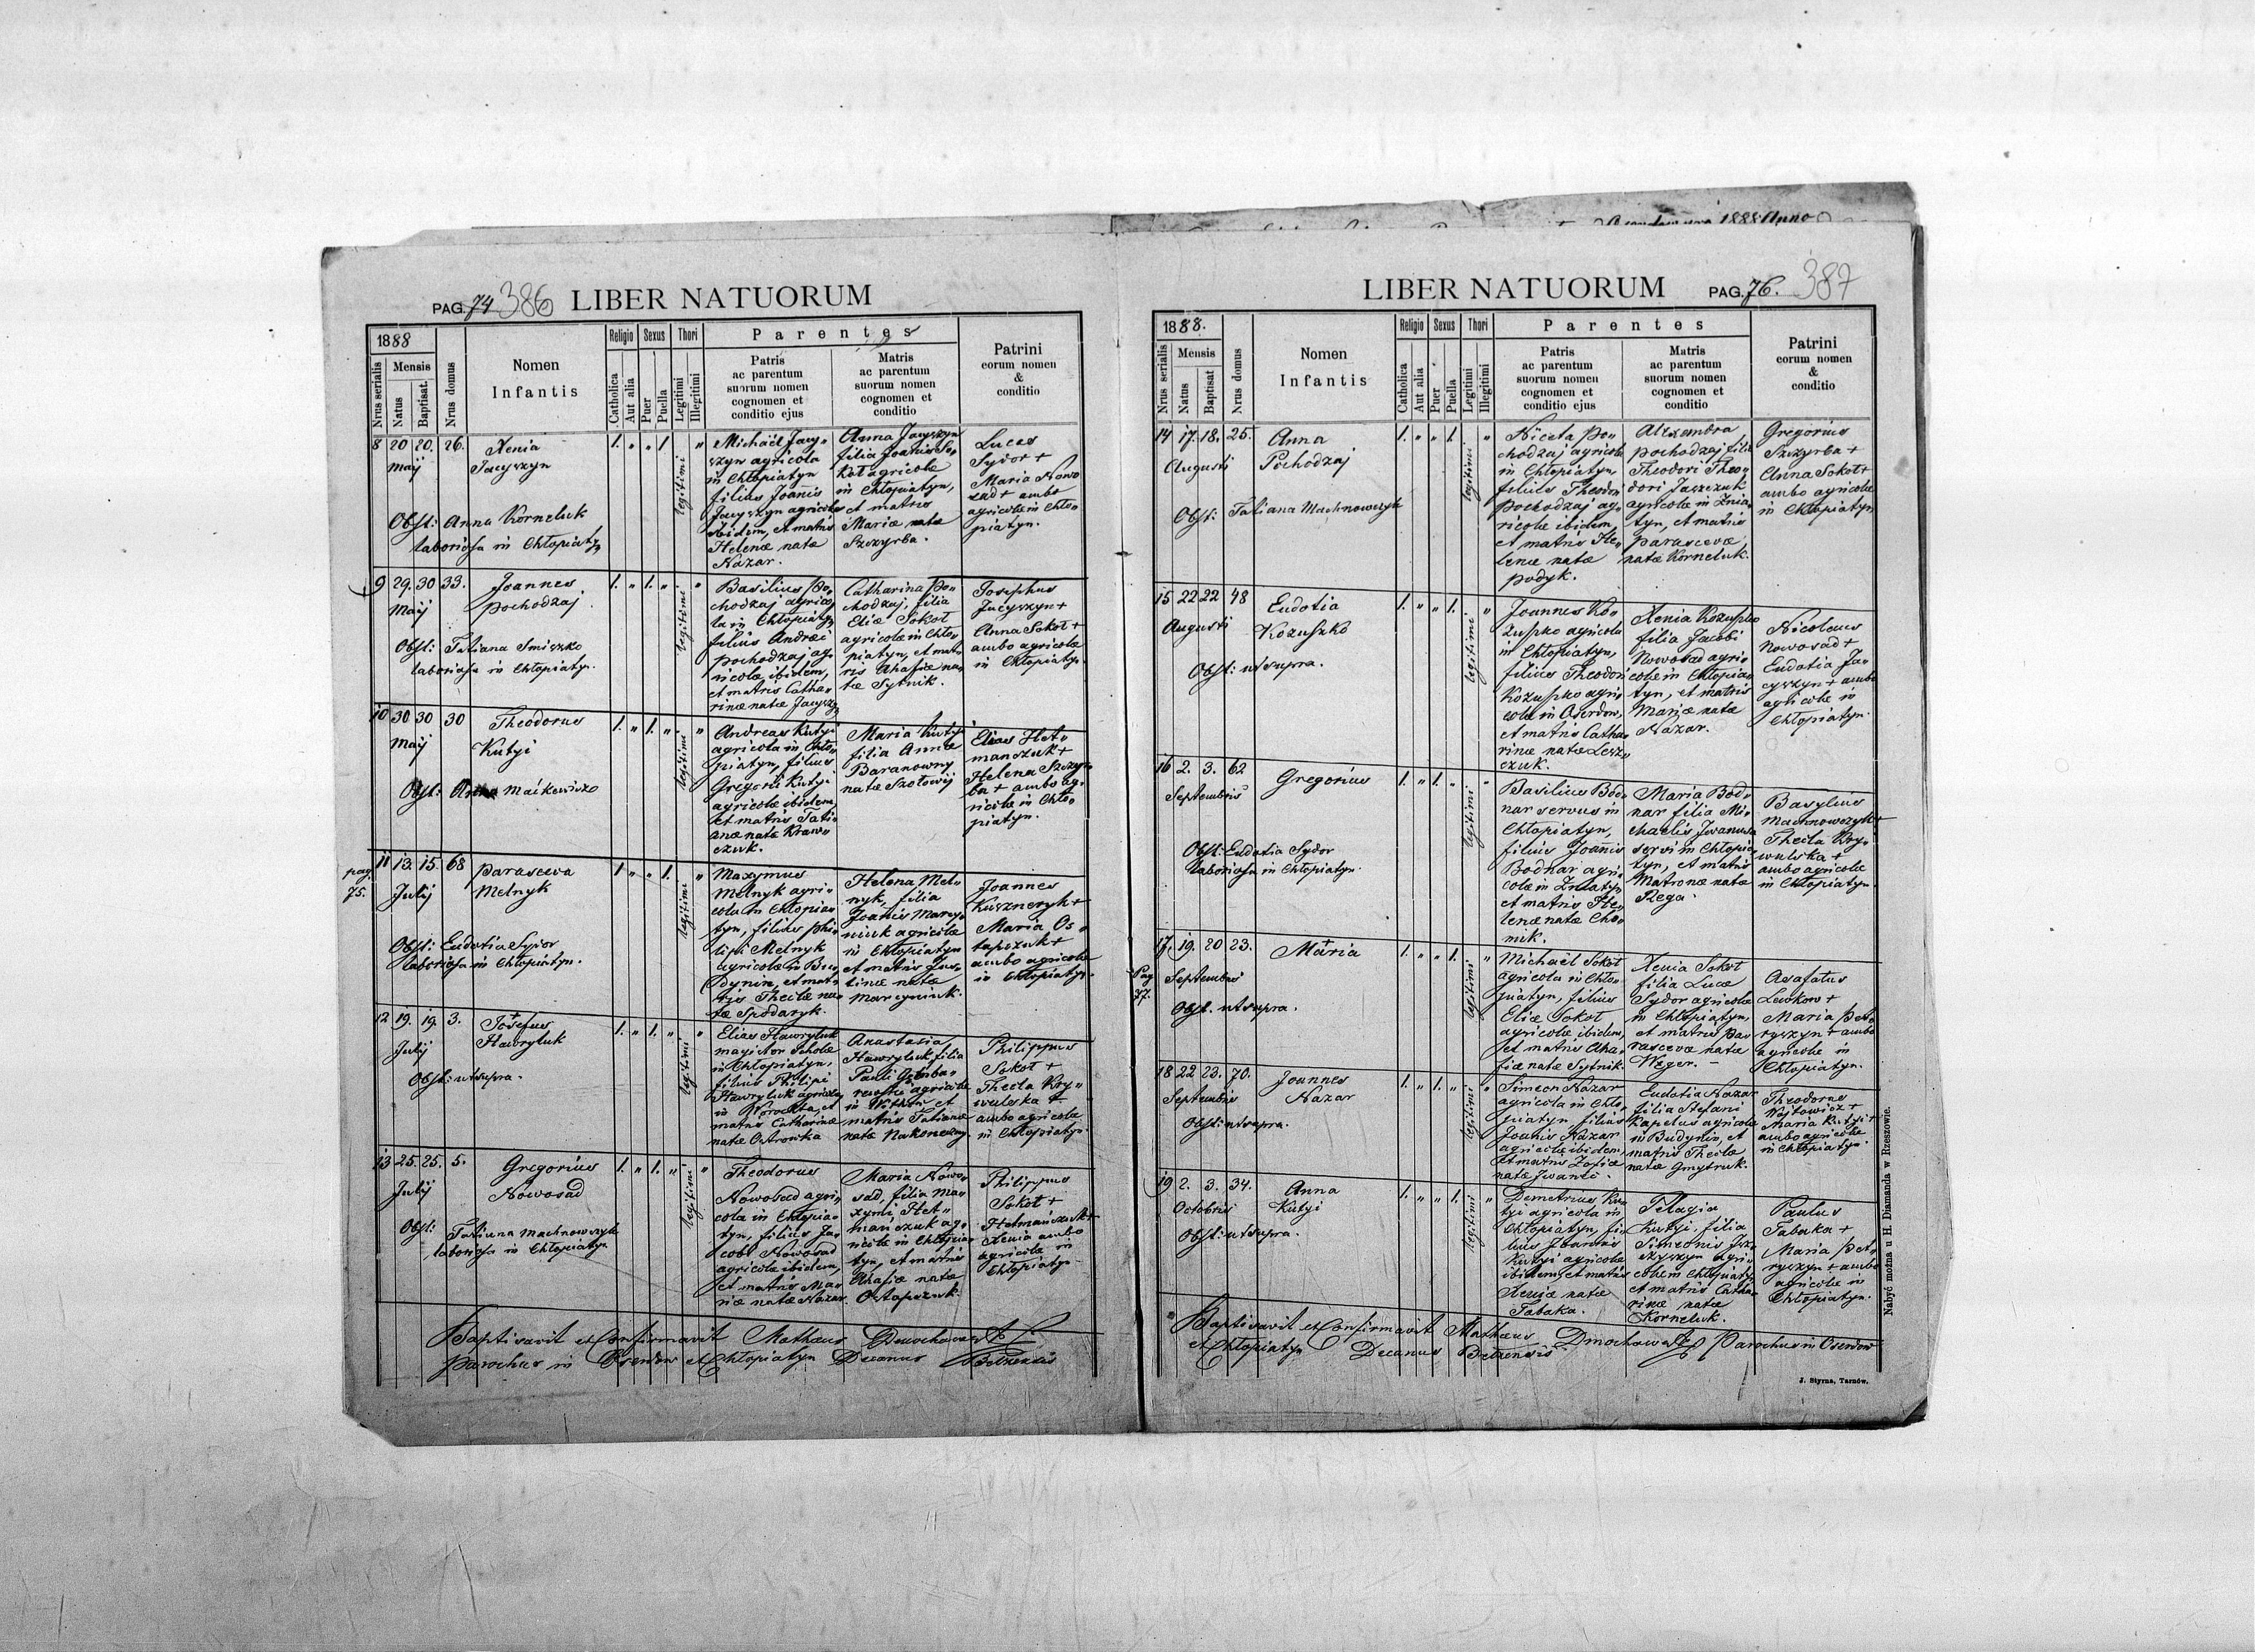 Secundum 1888 Anno
PAG. 74 386 LIBER NATUORUM
1888
Nrus serialis
Mensis
Natus
Baptisat.
Nrus domus
Nomen
Infantis
Religio
Catholica
Aut alia
Sexus
Puer
Puella
Thori
Legitimi
Illegitimi
Parentes
Patris
ac parentum
suorum nomen
cognomen et
conditio ejus
Matris
ac parentum
suorum nomen
cognomen et
conditio
Patrini
eorum nomen
&
conditio
8 20 20. 26.
Maij
Xenia
Jacyszyn
Obst: Anna Korneluk
laboriosa in Chłopiatyn
1. " " 1. legitimi "
Michaël Jacy„
szyn agricola
in Chłopiatyn
filius Joannis
Jacyszyn agricolæ
ibidem, et matris
Helenæ natæ
Nazar.
Anna Jacyszyn
filia Joannis So„
koł agricolæ
in Chłopiatyn,
et matris
Mariæ natæ
Szczyrba.
Lucas
Sydor +
Maria Nowo
sad + ambo
agricolæ in Chło„
piatyn.
9 29. 30 33.
Maij
Joannes
Pochodzaj
Obst: Tatiana Smiszko
laboriosa in Chłopiatyn.
1. " 1. " legitimi "
Basilius Po„
chodzaj agrico„
la in Chłopiatyn
filius Andreæ
Pochodzaj ag„
ricolæ ibidem,
et matris Catha„
rinæ natæ Jacyszyn
Catharina Po„
chodzaj, filia
Eliæ Sokoł
agricolæ in Chło„
piatyn, et mat„
ris Ahafiæ na„
tæ Sytnik.
Josephus
Jacyszyn +
Anna Sokoł +
ambo agricolæ
in Chłopiatyn.
10 30 30 30
Maij
Theodorus
Kutyi
Obst: Anna Maikewicz
1. " 1. " legitimi "
Andreas Kutyi
agricola in Chło„
piatyn, filius
Gregorii Kutyi
agricolæ ibidem,
et matris Tati„
anæ natæ Kraw„
czuk.
Maria Kutyi
filia Annæ
Baranowny
natæ Szołowij
Elias Het„
manczuk +
Helena Szczyr„
ba + ambo ag„
ricolæ in Chło„
piatyn.
pag.
75.
11 13. 15. 68
Julij
Parasceva
Melnyk
Obst: Eudotia Sydor
laboriosa in Chłopiatyn.
1 " " 1. legitimi "
Maxymus
Melnyk agri„
cola in Chłopia„
tyn, filius Phi„
lipi Melnyk
agricolæ in Bu„
dynin, et mat„
ris Theclæ na„
tæ Spodaryk.
Helena Mel„
nyk, filia
Joannis Marcy„
niuk agricolæ
in Chłopiatyn
et matris Jus„
tinæ natæ
Marcyniuk.
Joannes
Kuszneryk +
Maria Os„
tapczuk +
ambo agricolæ
in Chłopiatyn.
12 19. 19. 3.
Julij
+
Josefus
Hawryluk
Obst: ut supra.
1. " 1. " legitimi "
Elias Hawryluk
magister scholæ
in Chłopiatyn,
filius Philipi
Hawryluk agricolæ
in Worochta, et
matris Catharinæ
natæ Ostrowka
Anastasia
Hawryluk filia
Pauli
agricolæ
in et
matris Tatianæ
natæ Nakoneczny.
Philippus
Sokoł +
Thecla Kry„
wulska +
ambo agricolæ
in Chłopiatyn.
13 25. 25. 5.
Julij
Gregorius
Nowosad
Obst: Tatiana Machnowczyk
laboriosa in Chłopiatyn
1. " 1. " legitimi "
Theodorus
Nowosad agri„
cola in Chłopia„
tyn, filius Ja„
cobi Nowosad
agricolæ ibidem,
et matris Ma„
riæ natæ Nazar.
Maria Nowo„
sad, filia Ma„
xymi Het„
mańczuk ag„
ricolæ in Chłopia„
tyn, et matris
Ahafiæ natæ
Ostapczuk.
Philippus
Sokoł +
Hetmańczuk +
Xenia ambo
agricolæ in
Chłopiatyn
Baptisavit et Confirmavit Mathæus Dmochowski
Parochus in Oserdow et Chłopiatyn Decanus Belzensis
LIBER NATUORUM PAG. 76. 387
1888.
Nrus serialis
Mensis
Natus
Baptisat
Nrus domus
Nomen
Infantis
Religio
Catholica
Aut alia
Sexus
Puer
Puella
Thori
Legitimi
Illegitimi
Parentes
Patris
ac parentum
suorum nomen
cognomen et
conditio ejus
Matris
ac parentum
suorum nomen
cognomen et
conditio
Patrini
eorum nomen
&
conditio
14 17. 18. 25.
Augusti
Anna
Pochodzaj
Obst: Tatiana Machnowczyk
1. " " 1. legitimi "
Niceta Po„
chodzaj agricola
in Chłopiatyn,
filius Theodori
Pochodzaj ag„
ricolæ ibidem,
et matris He„
lenæ natæ
Podyk.
Alexandra
Pochodzaj filia
Theodori Theo„
dori Jaszczuk
agricolæ in Żnia„
tyn, et matris
Parascevæ,
natæ Korneluk.
Gregorius
Szczyrba +
Anna Sokoł +
ambo agricolæ
in Chłopiatyn
15 22 22 48
Augusti
Eudotia
Kozuszko
Obst: ut supra.
1. " " 1. legitimi "
Joannes Ko„
zuszko agricola
in Chłopiatyn,
filius Theodori
Kozuszko agri„
colæ in Oserdow,
et matris Catha„
rinæ natæ Lesz„
czuk.
Xenia Kozuszko
filia Jacobi
Nowosad agri„
colæ in Chłopia„
tyn, et matris
Mariæ natæ
Nazar.
Nicolaus
Nowosad +
Eudotia Ja„
cyszyn + ambo
agricolæ in
Chłopiatyn.
16 2. 3. 62
Septembris
Gregorius
Obst: Eudotia Sydor
laboriosa in Chłopiatyn.
1. " 1. " legitimi "
Basilius Bod„
nar servus in
Chłopiatyn,
filius Joannis
Bodnar agri„
colæ in Żniatyn
et matris He„
lenæ natæ Cho„
mik.
Maria Bod„
nar filia Mi„
chaelis Iwanuwa
servi in Chłopia„
tyn, et matris
Matronæ natæ
Rega.
Basylius
Machnowczyk +
Thecla Kry„
wulska +
ambo agricolæ
in Chłopiatyn.
Pag
77.
17. 19. 20 23.
Septembris
+
Maria
Obst. ut supra.
1. " " 1. legitimi "
Michaël Sokoł
agricola in Chło„
piatyn, filius
Eliæ Sokoł
agricolæ ibidem,
et matris Aha„
fiæ natæ Sytnik.
Xenia Sokoł
filia Lucæ
Sydor agricolæ
in Chłopiatyn,
et matris Pa„
rascevæ natæ
Weger. –
Asafatus
Lewkow +
Maria Pet„
ryszyn + ambo
agricolæ in
Chłopiatyn.
18 22 23. 70.
Septembris
Joannes
Nazar
Obst: ut supra.
1. " 1. " legitimi "
Simeon Nazar
agricola in Chło„
piatyn filius
Joannis Nazar
agricolæ ibidem,
et matris Zofiæ
natæ Iwanci.
Eudotia Nazar
filia Stefani
Kapelus agricolæ
in Budynin, et
matris Theclæ
natæ Gmytruk.
Theodorus
Wojtowicz +
Maria Kutyi +
ambo agricolæ
in Chłopiatyn.
19 2. 3. 34.
Octobris
Anna
Kutyi
Obst: ut supra.
1. " " 1. legitimi "
Demetrius Ku„
tyi agricola in
Chłopiatyn, fi„
lius Joannis
Kutyi agricolæ
ibidem, et matris
Xeniæ natæ
Tabaka.
Pelagia
Kutyi, filia
Simeonis Jac„
yszyn agri„
colæ in Chłopiatyn
et matris Catha„
rinæ natæ
Korneluk.
Paulus
Tabaka +
Maria Pet„
ryszyn + ambo
agricolæ in
Chłopiatyn.
Baptisavit et Confirmavit Mathæus Dmochowski Parochus in Oserdow
et Chłopiatyn Decanus Belzensis
J. Styrna, Tarnów.
Nabyć można u H. Diamanda w Rzeszowie.